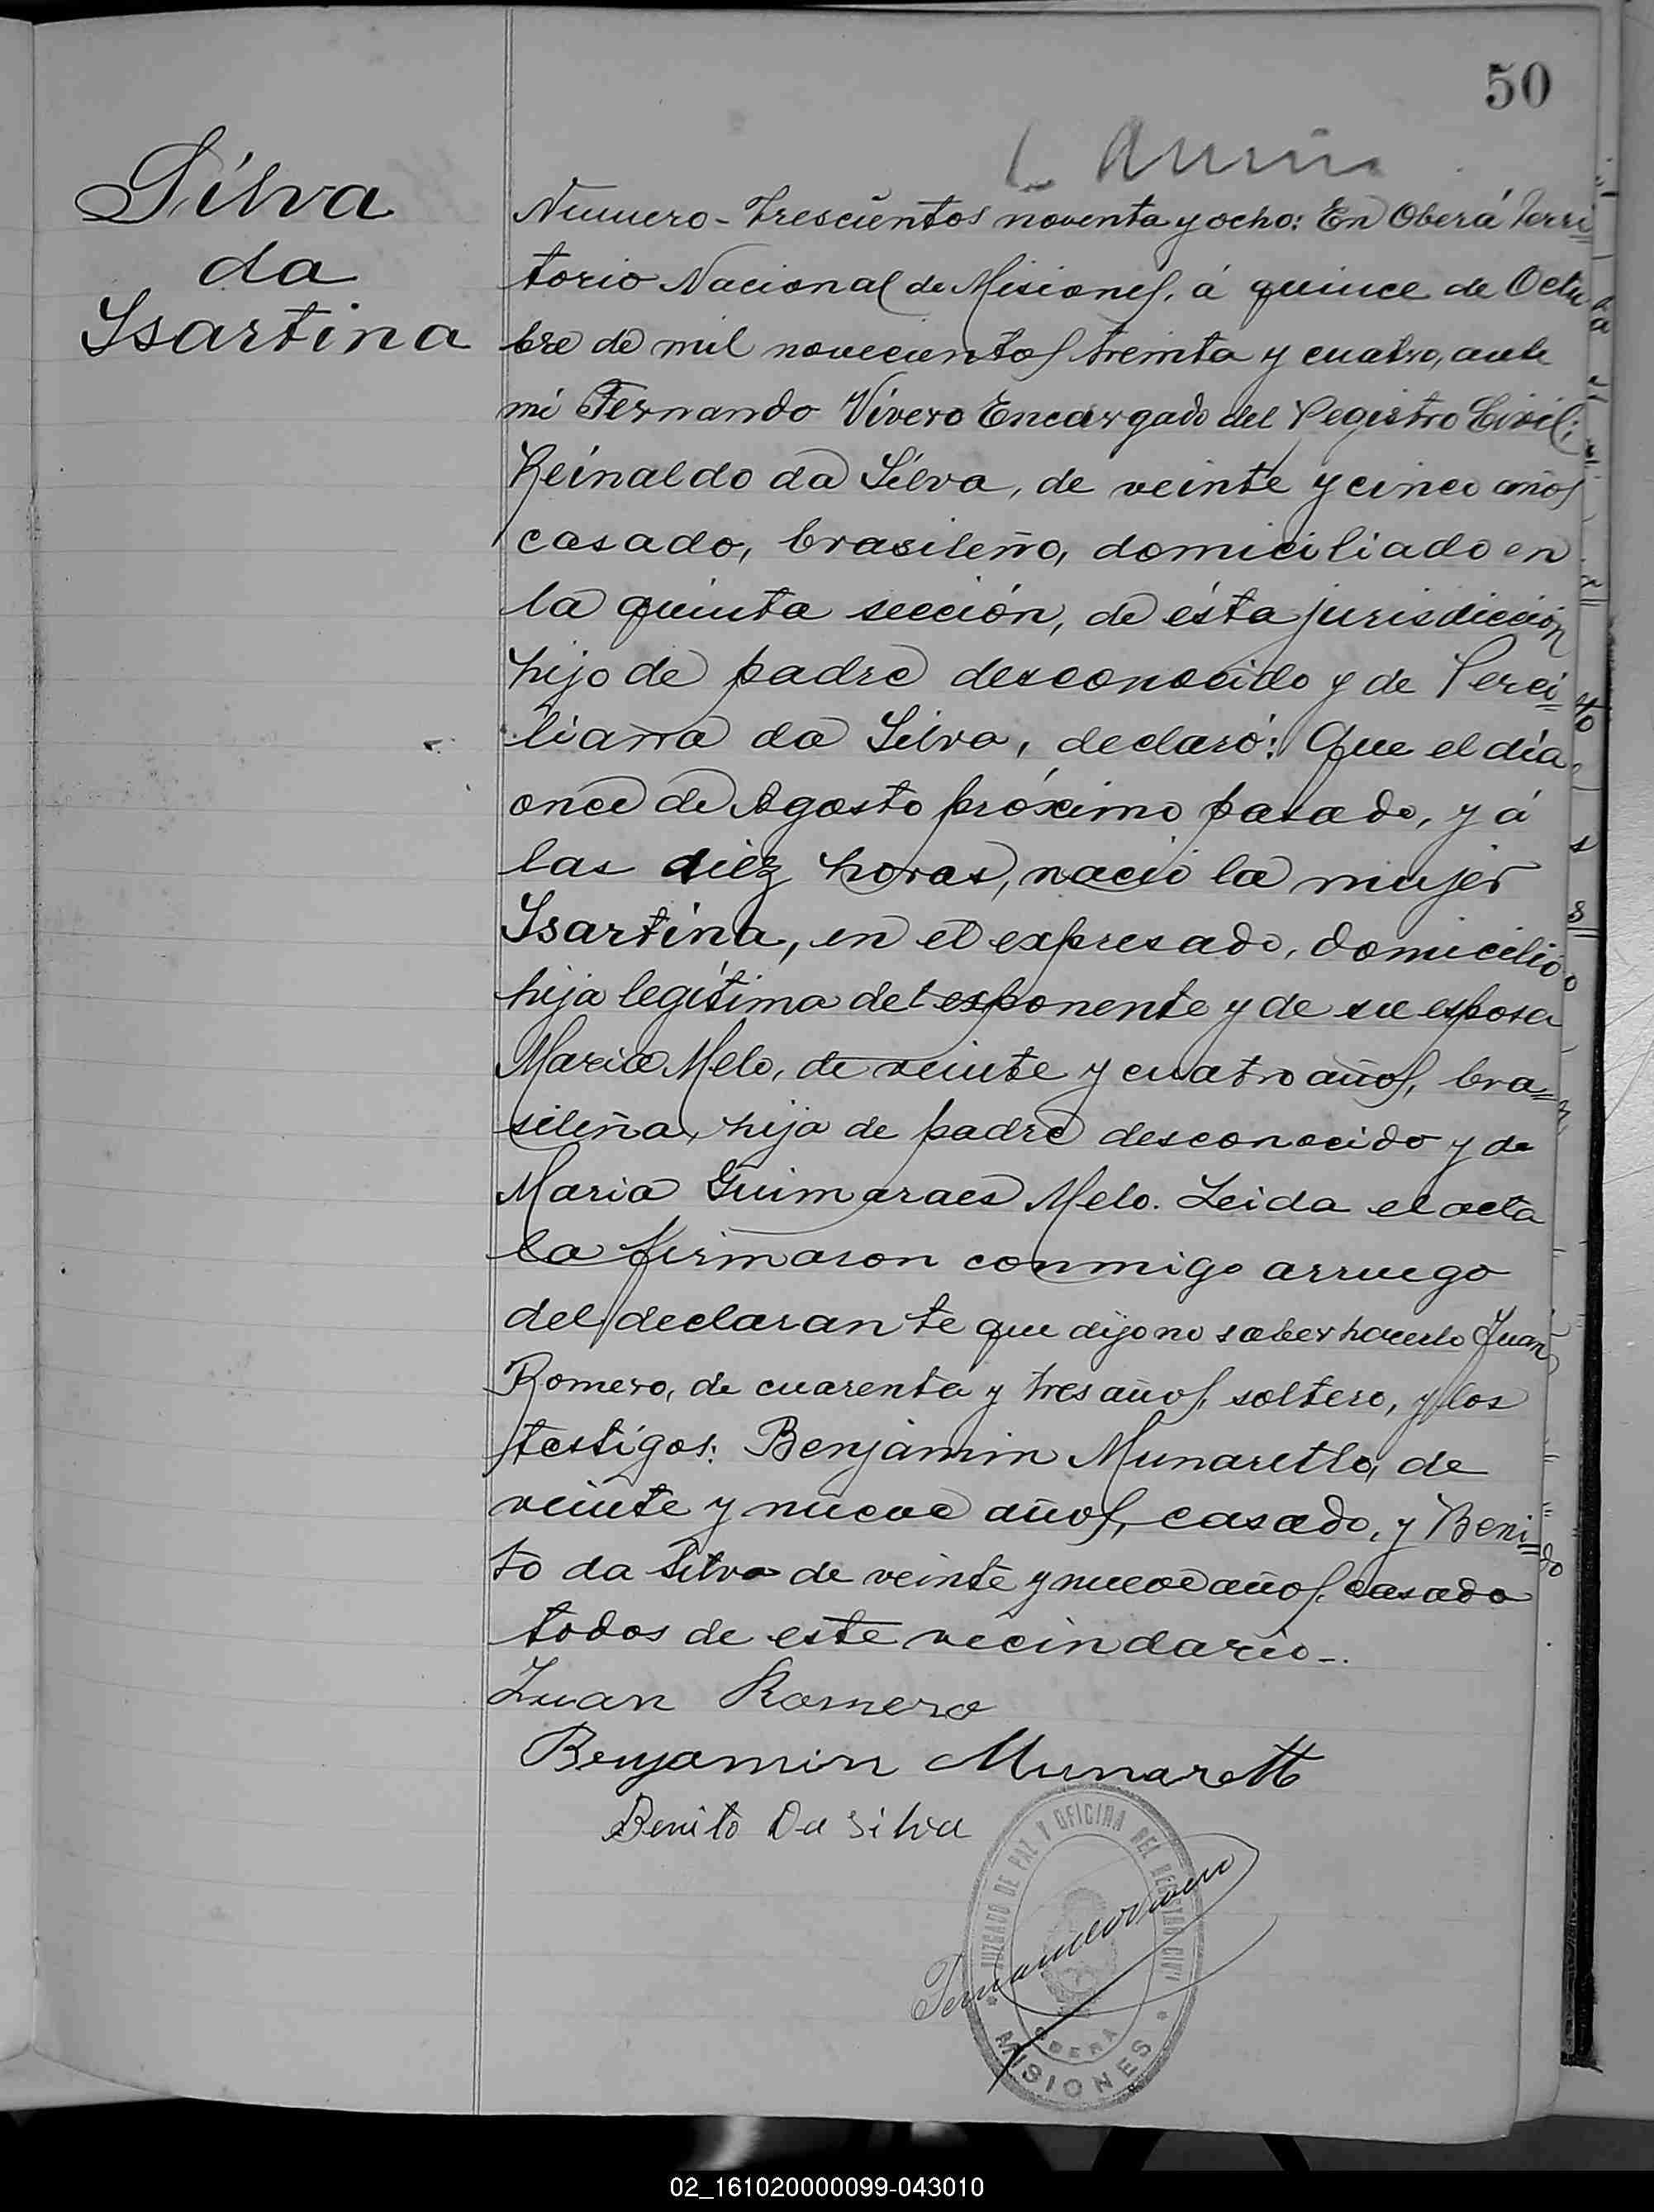 50
Silva
da
Ysartina
Numero - Trescientos noventa y ocho: En Oberá Terri=
torio Nacional de Misiones, á quince de Octu
bre de mil novecientos treinta y cuatro, ante
mi Fernando Vivero Encargado del Registro Civil;
Reinaldo da Silva, de veinte y cinco años
casado, brasileño, domiciliado en
la quinta sección, de ésta jurisdicción
hijo de padre desconocido y de Perci=
liana da Silva, declaró: Que el día
once de Agosto próximo pasado, y á
las diez horas, nació la mujer
Ysartina, en el expresado, domicilio
hija legítima del esponente y de su esposa
Maria Melo, de veinte y cuatro años, bra=
sileña, hija de padre desconocido y de
Maria Guimaraes Melo. Leida el acta
la firmaron conmigo arruego
del declarante que dijo no saber hacerlo Juan
Romero, de cuarenta y tres años, soltero, y los
testigos: Benjamin Munaretto, de
veinte y nueve años, casado, y Beni=
to da Silva de veinte y nueve años, casado
todos de este vecindario-.
Juan Romero
Benjamin Munaretto
Benito Da Silva
JUZGADO DE PAZ Y OFICINA DEL REGISTRO CIVIL
Fernando Vivero
OBERA
MISIONES
02_161020000099-043010